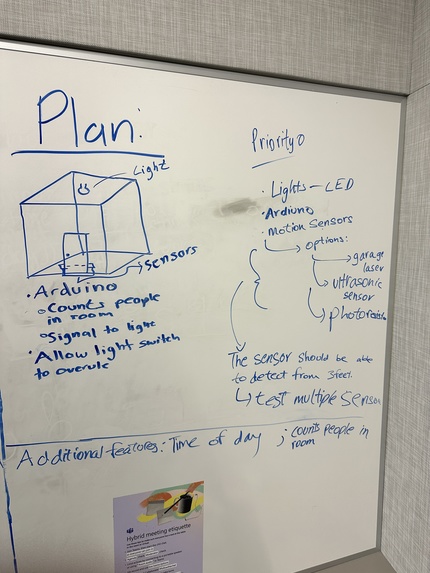 Plan:
Light
sensors
• Arduino
o Counts people
in room
o Signal to light
• Allow light switch
to overule
Priority
• Lights - LED
• Arduino
• Motion Sensors
options:
garage
laser
ultrasonic
sensor
The sensor should be able
to detect from 3feet.
test multiple Sensors
Additional features: Time of day ; counts people in
room
Hybrid meeting etiquette